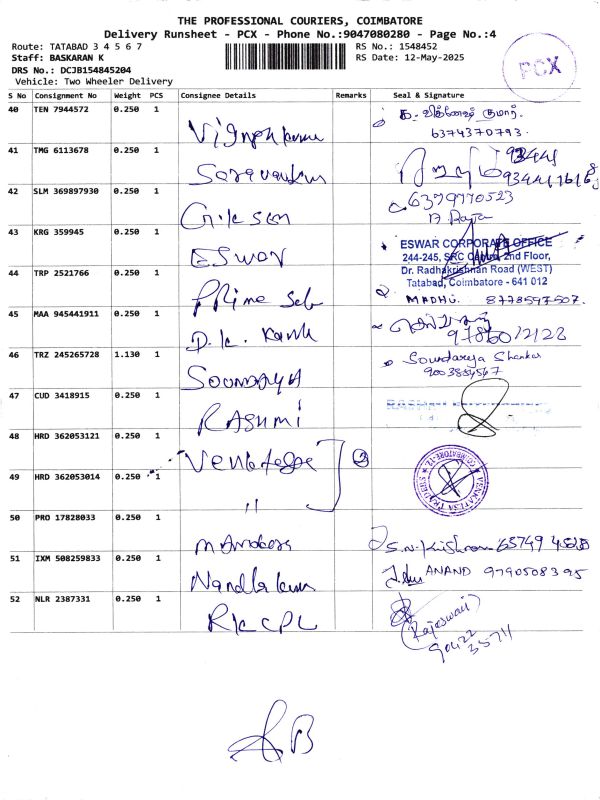 THE PROFESSIONAL COURIERS, COIMBATORE
Delivery Runsheet - PCX - Phone No.:9047080280 - Page No.:4
Route: TATABAD 3 4 5 6 7
RS No.: 1548452
Staff: BASKARAN K
RS Date: 12-May-2025
DRS No.: DCJB154845204
Vehicle: Two Wheeler Delivery
PCX
S No Consignment No Weight PCS Consignee Details Remarks Seal & Signature
40 TEN 7944572 0.250 1
6374370793.
41 TMG 6113678 0.250 1
42 SLM 369897930 0.250 1
6379770523
43 KRG 359945 0.250 1 ESWAR
ESWAR CORPORATE OFFICE
244-245, SRC 2nd Floor,
Dr. Radhakrishnan Road (WEST)
Tatabad, Coimbatore - 641 012
44 TRP 2521766 0.250 1 Prime
MADHU. 8778597507.
45 MAA 945441911 0.250 1 D.K.
46 TRZ 245265728 1.130 1 Soundarya
Soundarya Shankar
47 CUD 3418915 0.250 1 RASHMI
48 HRD 362053121 0.250 1 Venkatesa 2
49 HRD 362053014 0.250 1 "
50 PRO 17828033 0.250 1
51 IXM 508259833 0.250 1 Nandha
ANAND 9790508395
52 NLR 2387331 0.250 1
(Rajeswari)
90422
35711